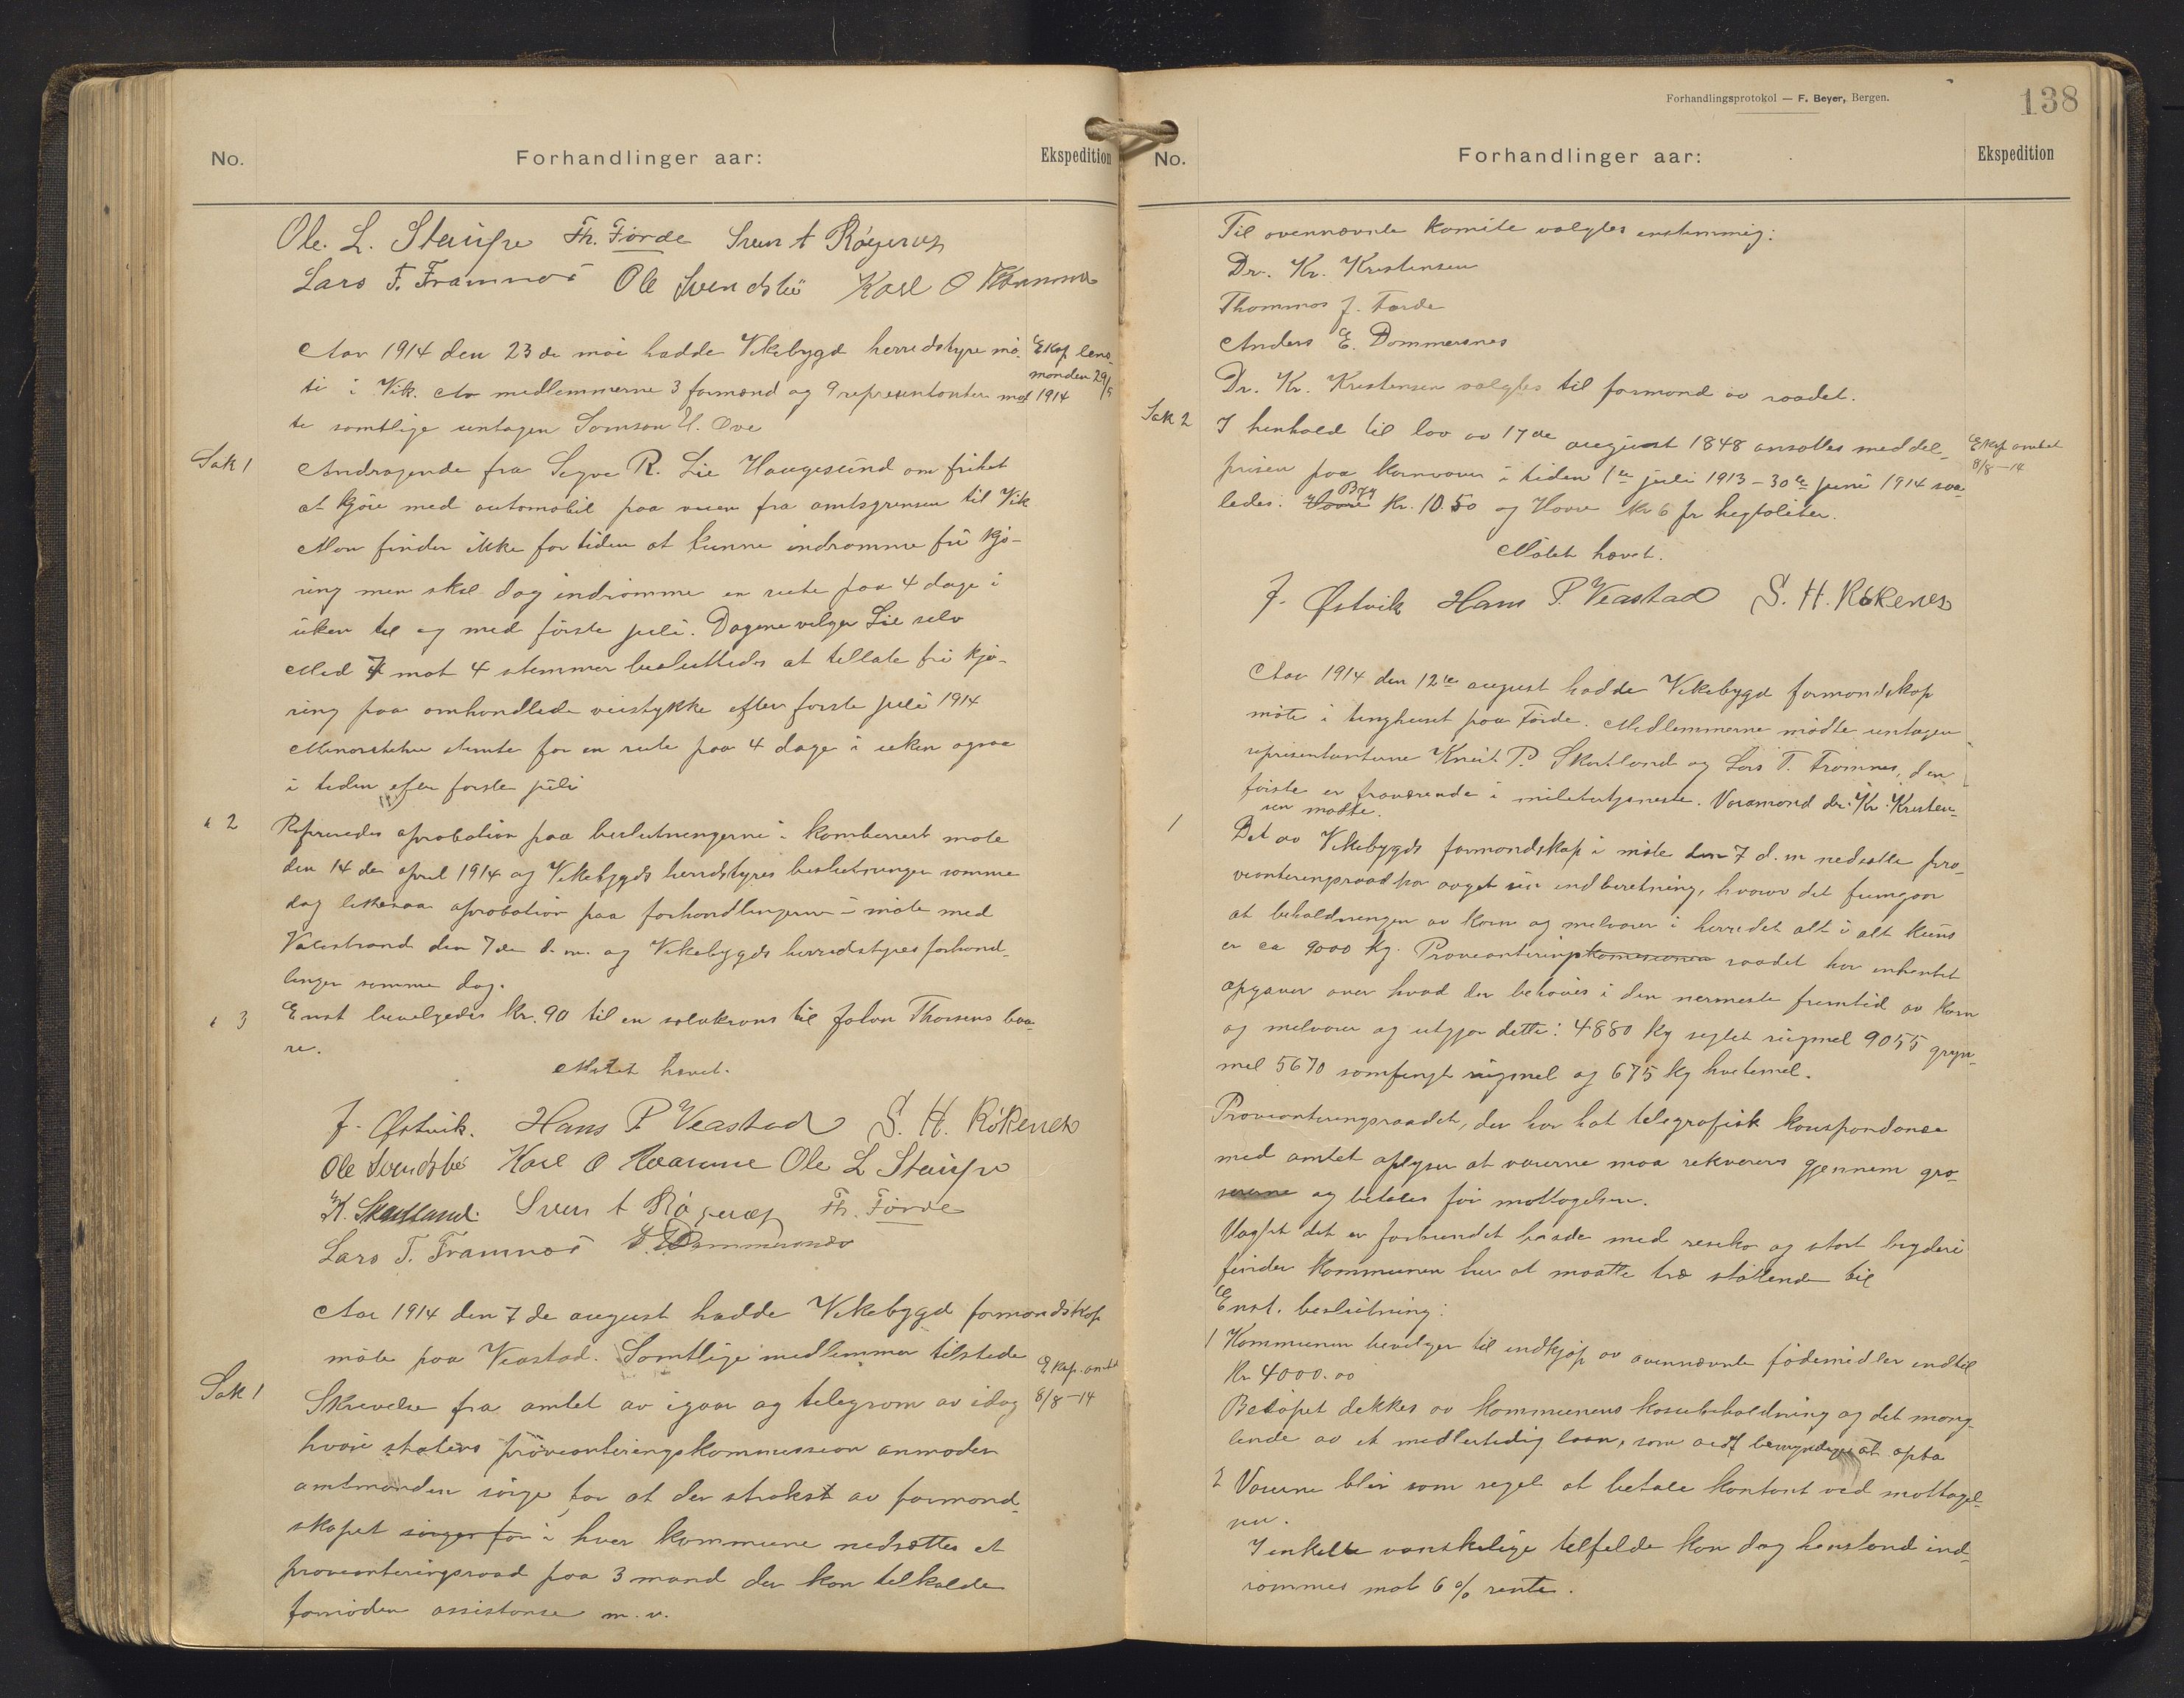 No.
Forhandlinger aar:
Ekspedition
Ole. L. Steinsøe Th. Førde Sven A
Lars T. Framnes Ole Svendsbø Karl O
Aar 1914 den 23de mai hadde Vikebygd herredstyre mø-
te i Vik. Av medlemmerne 3 formænd og 9 representanter møt
te samtlige untagen Samson H. Øve
Eksp lens-
manden 29/5
1914
Sak 1
Andragende fra Sigve R. Lie Haugesund om frihet
at kjøre med automobil paa veien fra amtsgrensen til Vik
Man finder ikke for tiden at kunne indrømme fri kjø-
ring men skal dog indrømme en rute paa 4 dage i
uken til og med første juli. Dagene velger Lie selv
Med 7 mot 4 stemmer besluttedes at tillate fri kjø-
ring paa omhandlede veistykke efter første juli 1914
Minoriteten stemte for en rute paa 4 dage i uken ogsaa
i tiden efter første juli
" 2
Refereredes aprobation paa beslutningerne i kombinert møte
den 14 de april 1914 og Vikebygds herredstyres beslutninger samme
dag likesaa aprobation paa forhandlingerne i møte med
Valestrand den 7de d.m. og Vikebygds herredstyres forhand-
linger samme dag.
" 3
Enst bevilgedes kr. 90 til en sølvkrans til Johan Thorsens baa-
re.
Møtet hævet.
J. Østvik. Hans P. Veastad S. H. Røkenes
Ole Svendsbø Karl O Ole L Steinsøe
K. Skartland Sven A Th. Førde
Lars T. Framnes
Aar 1914 den 7de august hadde Vikebygd formandskap
møte paa Veastad. Samtlige medlemmer tilstede
Eksp. amtet
8/8-14
Sak 1
Skrivelse fra amtet av igaar og telegram av idag
hvori statens provianteringskommission anmoder
amtmanden sørge for at der strakst av formand-
skapet sørger for i hver kommune nedsættes et
provianteringsraad paa 3 mand der kan tilkalde
fornøden assistanse m.v.
Forhandlingsprotokol — F. Beyer, Bergen.
138
No.
Forhandlinger aar:
Ekspedition
Til ovennævnte komite valgtes enstemmig:
Dr. Kr. Kristensen
Thommas J. Førde
Anders E. Dommersnes
Dr. Kr. Kristensen valgtes til formand av raadet.
Sak 2
I henhold til lov av 17de august 1848 ansattes middel-
prisen paa kornvarer i tiden 1ste juli 1913 - 30te juni 1914 saa-
ledes: Havre Byg Kr. 10.50 og Havre Kr 6 pr hegtoliter.
Eksp amtet
8/8-14
Møtet hævet.
J. Østvik Hans P. Veastad S. H. Røkenes
Aar 1914 den 12te august hadde Vikebygd formandskap
møte i tinghuset paa Førde. Medlemmerne møtte untagen
representanterne Knut P. Skartland og Lars T. Framnes, den
første er fraværende i militærtjeneste. Varamand dr. Kr. Kristen-
sen møtte.
1
Det av Vikebygds formandskap i møte den 7 d. m nedsatte pro-
vianteringsraad har avgit sin indberetning, hvorav det fremgaar
at beholdningen av korn og melvarer i herredet alt i alt kuns
er ca 9000 kg. Provianteringskomisionen raadet har inhentet
opgaver over hvad der behøves i den nermeste fremtid av korn
og melvarer og utgjør dette: 4880 kg sigtet rugmel 9055 gryn-
mel 5670 samfengt rugmel og 675 kg hvetemel.
Provianteringsraadet, der har hat telegrafisk korrespondanse
med amtet oplyser at varerne maa rekvireres gjennem gro-
sererne og betales før mottagelsen.
Uagtet det er forbundet baade med resiko og stort bryderi
finder kommunen her at maatte træ støttende til
Enst. beslutning:
1 Kommunen bevilger til indkjøp av ovennævnte fødemidler indtil
Kr 4000.00
Beløpet dekkes av kommunens kassebeholdning og det mang-
lende av et midlertidig laan, som ordf bemyndiges at opta
2 Varerne blir som regel at betale kontant ved mottagel-
sen.
I enkelte vanskelige tilfelde kan dog henstand ind-
rømmes mot 6 % rente.